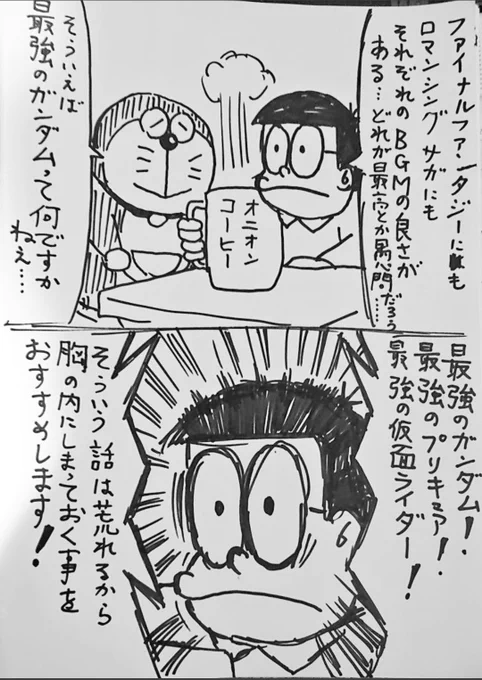 ファイナルファンタジーにも
ロマンシング サガにも
それぞれのBGMの良さが
ある…どれが最高とか愚問だろう……
オニオン
コーヒー
そういえば
最強のガンダムって何ですか
ねぇ……
最強のガンダム!
最強のプリキュア!
最強の仮面ライダー!
そういう話は荒れるから
胸の内にしまっておく事を
おすすめします!